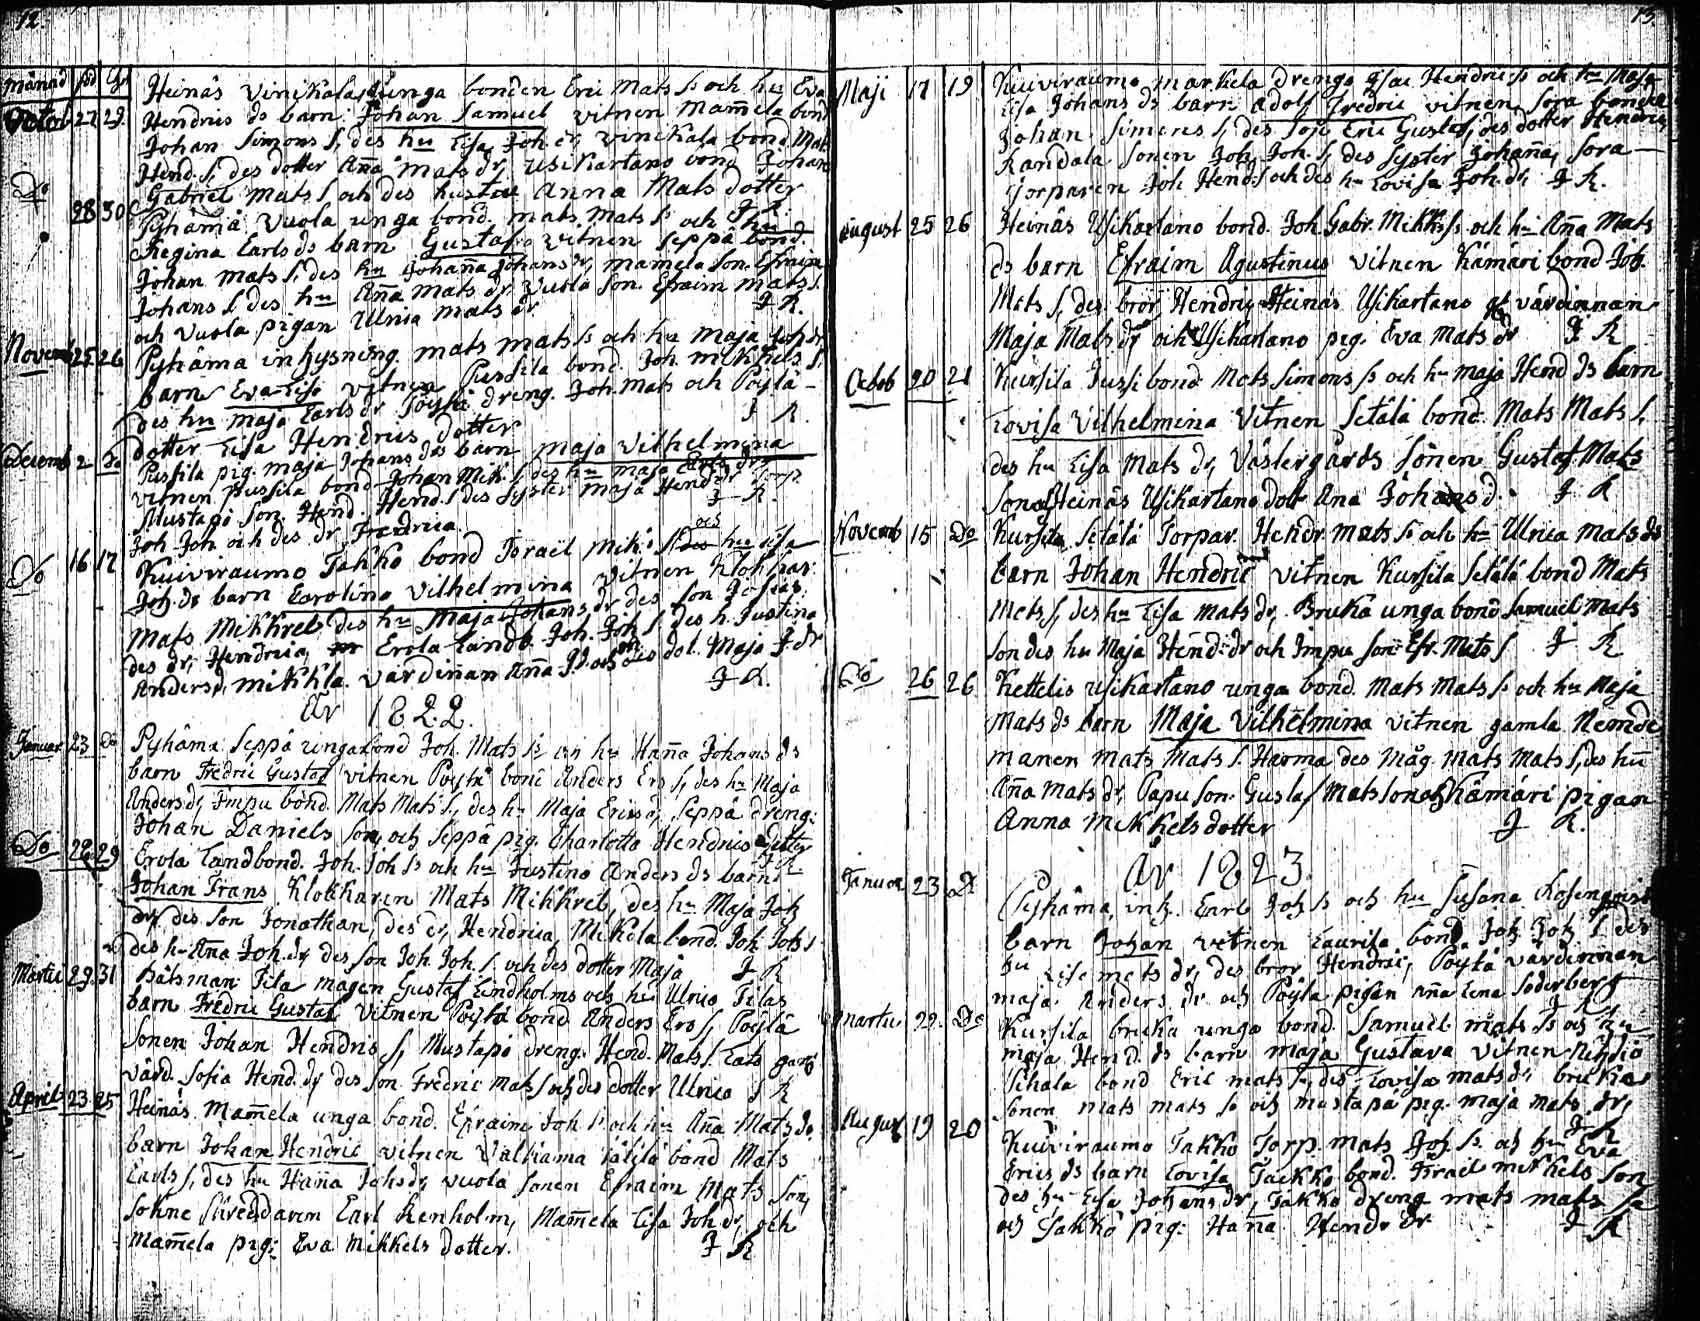 12.
månad föd Chr
Octob 27 29 Heinäs Vinikala unga bonden Eric Mats s: och hu Eva
Hendrics ds barn Johan Samuel vitnen Mamela bond
Johan Simons s, des hu Lisa Joh. dr, Vinikala bond Mat
Hend. s, des dotter Aña Mats dr, Usikartano bond Johan
Gabriel Mats s och des hustru Anna Mats dotter
J R.
Do 28 30 Pyhämä Vuola unga bond. Mats Mats s: och hu
Regina Earls ds barn Gustaf vitnen Seppä bond.
Johan Mats s, des hu Johaña Johans dr, Mamela Son. Efraim
Johans s. des hu Aña Mats dr, Vuola son. Efraim Mats s.
och Vuola pigan Ulrica Mats dr J R.
Novemb 25 26 Pyhäma inhysning. Mats Mats s: och hu Maja Joh dr
barn Eva Lisa vitnen Pussila bond. Joh. Mikkels s,
des hu Maja Earls dr Pöyllä dreng. Joh. Mats och Pöylä
dotter Lisa Hendrics dotter J R
Decemb 2 Do Pussila pig. Maja Johans ds barn Maja Vilhelmina
vitnen Pussila bond Johan Mik. s, des hu Maja Earls dr, Torp
Mustapä Son. Hend. Hend. s des Syster Maja Hend dr
Joh Joh. och des dr, Fredrica. J R.
Do 16 17 Kuiviraumo Takko bond Israel Mik. s och hu Lisa
Joh. ds barn Carolina Vilhelmina vitnen Klokkar.
Mats Mikkrel des hu Maja Johans dr des Son Josias
des dr, Hendrica, Erola Landb. Joh. Joh s, des h. Justina
Anders d, Mikkla värdiñan Aña J. d och des dot. Maja J. dr
J R.
År 1822.
Januar 23 Do Pyhäma Seppä unga bond Joh. Mats s: och hu Haña Johans ds
barn Fredric Gustaf vitnen Pöytä bond Anders Ers s, des hu Maja
Anders dr, Impu bond. Mats Mats s, des hu Maja Erics d, Seppä dreng.
Johan Daniels Son, och Seppä pig. Charlotta Hendrics dotter
J R
Do 28 29 Erola Landbond. Joh. Joh s: och hu Justina Anders ds barn
Johan Frans Klokkaren Mats Mikkrel, des hu Maja Joh
dr, des Son Jonathan, des dr, Hendrica, Mikola bond. Joh Joh s
des hu Aña Joh. dr, des Son Joh. Joh. s. och des dotter Maja J R
Martii 29 31 Båtsman Fila magen Gustaf Lindholms och hu Ulrica Filas
barn Fredric Gustaf vitnen Pöytä bond Anders Ers s, Pöylä
Sonen Johan Hendrics s, Mustapä dreng. Hend. Mats s.
värd. Sofia Hend. dr, des Son Fredric Mats s och des dotter Ulrica J R
April 23 25 Heinäs Mamela unga bond. Efraim Joh s: och hu Aña Mats ds
barn Johan Hendric vitnen Valkiama Jälilä bond Mats
Earls s, des hu Haña Johs dr, Vuola Sonen Efraim Mats Son,
Sohne Skreddaren Earl Renholm, Mamela Lisa Joh. dr, och
Mamela pig: Eva Mikkels dotter. J R
13.
Maji 17 19 Kuiviraumo Markela drengs Isac Hendrics s: och hu Maja
Lisa Johans ds barn Adolf Fredric vitnen Sora bonden
Johan Simons s, des Son Eric Gustaf, des dotter Hendrica,
Randala Sonen Joh. Joh. s, des Syster Johaña, Sora
Torparen Joh Hend. s och des hu Lovisa Joh. dr, J R.
August 25 26 Heinäs Usikartano bond. Joh. Gabr. Mikks s: och hu Aña Mats
ds barn Efraim Agustinus vitnen Kämäri bond Joh.
Mats s, des bror Hendric, Heinäs Usikartano värdinnan
Maja Mats dr, och Usikartano pig. Eva Mats dr J R
Octob 20 21 Kursila Jussi bond Mats Simons s: och hu Maja Hend ds barn
Lovisa Vilhelmina Vitnen Setälä bond. Mats Mats s,
des hu Lisa Mats dr, Västergårds Sonen Gustaf Mats
Son, och Heinäs Usikartano dotr Ana Johans d. J R
Novemb 15 Do Kursila Setälä Torpar. Hendr. Mats s: och hu Ulrica Mats ds
barn Johan Hendric vitnen Kursila Setälä bond Mats
Mats s, des hu Lisa Mats dr, Bruka unga bond Samuel Mats
Son des hu Maja Hend: dr och Impu Son Efr. Mats s J R
Do 26 26 Kettelis Usikartano unga bond. Mats Mats s: och hu Maja
Mats ds barn Maja Vilhelmina vitnen gamla Nemde
manen Mats Mats s. Harma des Måg Mats Mats s, des hu
Aña Mats dr, Papu Son. Gustaf Mats Son och Kämäri pigan
Anna Mikkels dotter J R.
År 1823.
Januar 23 D Pyhäma, inh. Earl Joh s: och hu Susana Rosenqvist
barn Johan vitnen Laurila bond Joh Joh. s. des
hu Lisa Mats dr, des bror Hendric, Pöytä värdinnan
Maja Anders dr och Pöylä pigan Aña Lena Söderberg
J R
Martii 29. Do Kursila bruka unga bond. Samuel Mats s: och hu
Maja Hend. ds barn Maja Gustava vitnen Nihtiö
Sihala bond Eric Mats s, des Lovisa Mats dr, bruka
Sonen Mats Mats s: och Mustapä pig. Maja Mats dr,
J R
August 19 20 Kuiviraumo Takko Torp. Mats Joh s: och hu Eva
Erics ds barn Lovisa Takko bond. Israel Mikkels Son
des hu Lisa Johans dr, Takko dreng Mats Mats s
och Takko pig: Haña Hendr dr J R